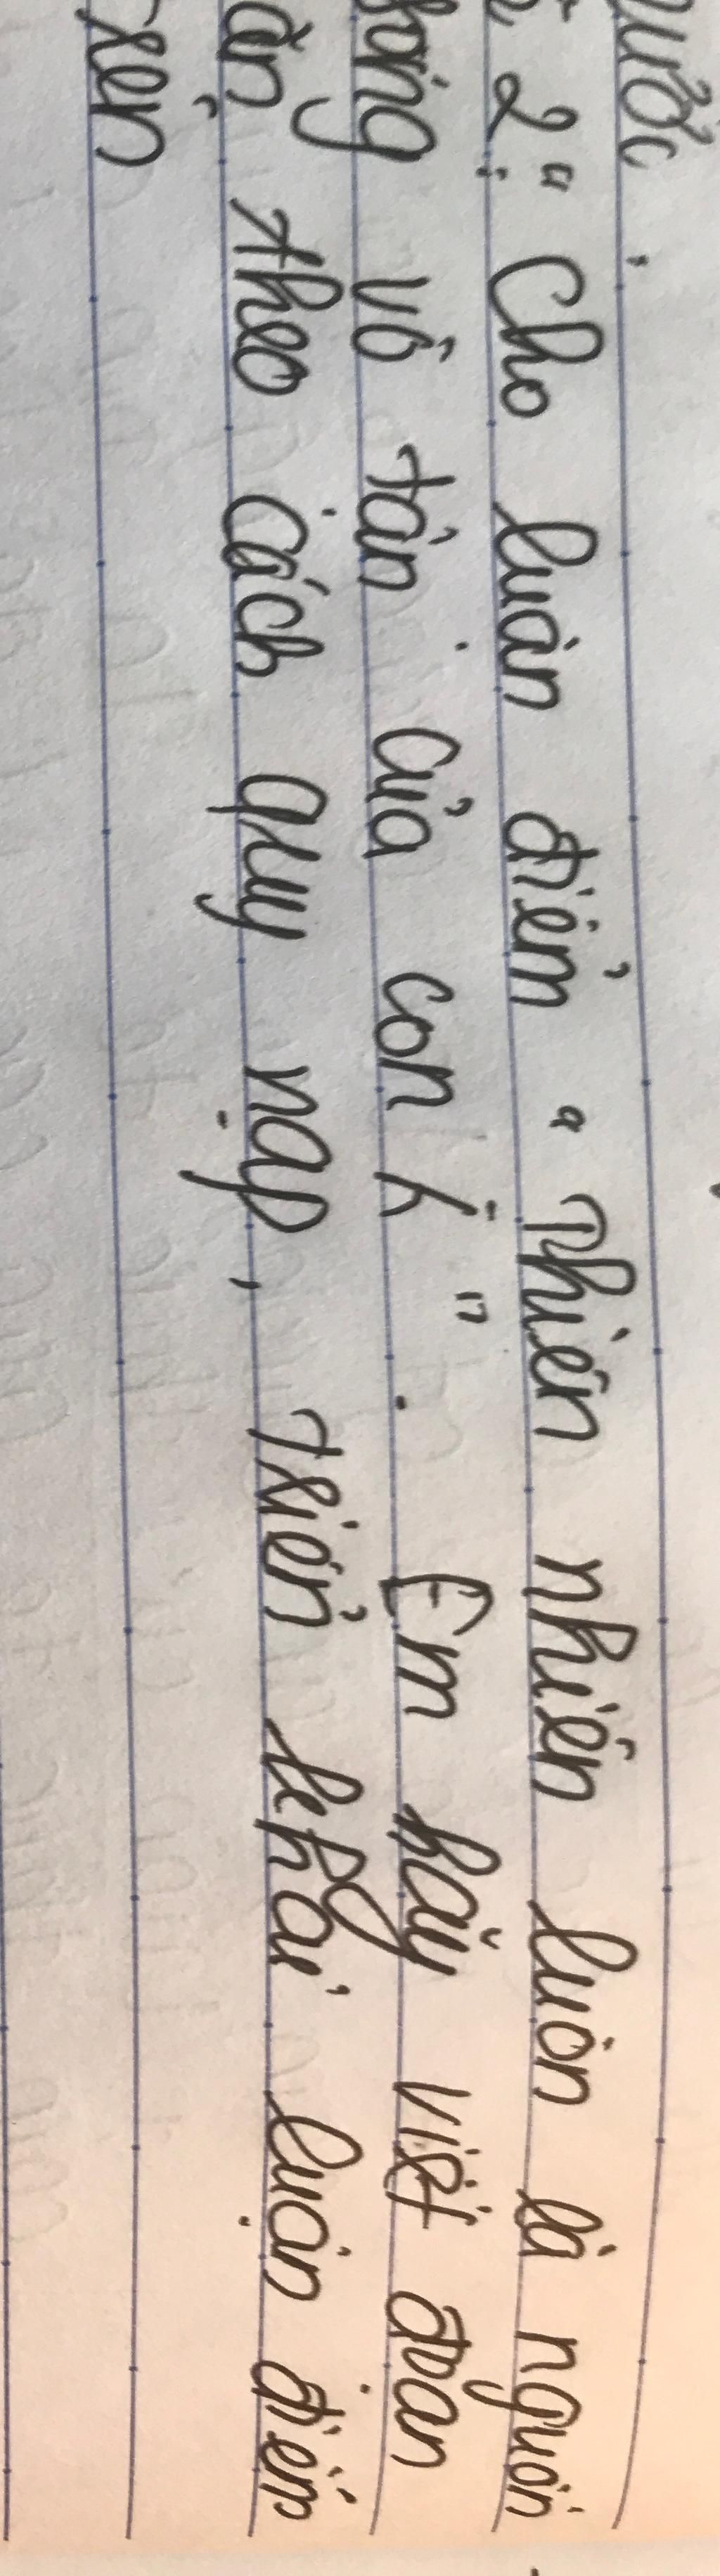 2: " Cho luận điểm " Thiên nhiên luôn là nguồn
vô tận của con . Em hãy viết đoạn
theo cách quy nạp, triển khai luận điểm
trên